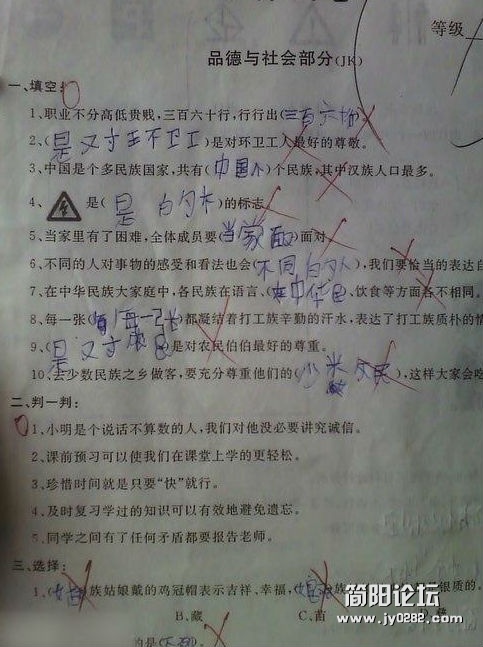 等级
品德与社会部分(JK)
一、填空:0
1、职业不分高低贵贱,三百六十行,行行出(三百六
2、(是又寸王不卫工)是对环卫工人最好的尊敬。
3、中国是个多民族国家,共有(中国人)个民族,其中汉族人口最多。
4、是(是 白勺)的标志
5、当家里有了困难,全体成员要(当家)面对
6、不同的人对事物的感受和看法也会(不同白勺人),我们要恰当的表达自
7、在中华民族大家庭中,各民族在语言、(中华民、饮食等方面各不相同。
8、每一张(每一张)都凝结着打工族辛勤的汗水,表达了打工族质朴的情
9、(是又寸农民)是对农民伯伯最好的尊重。
10、去少数民族之乡做客,要充分尊重他们的(少米),这样大家会
二、判一判:
0 1、小明是个说话不算数的人,我们对他没必要讲究诚信。
2、课前预习可以使我们在课堂上学的更轻松。
3、珍惜时间就是只要“快”就行。
4、及时复习学过的知识可以有效地避免遗忘。
5、同学之间有了任何矛盾都要报告老师。
三、选择:
1、(姑)族姑娘戴的鸡冠帽表示吉祥、幸福,(姑 族 银质的。
B、藏 C、苗
的是(不
简阳论坛
www.jy0282.com